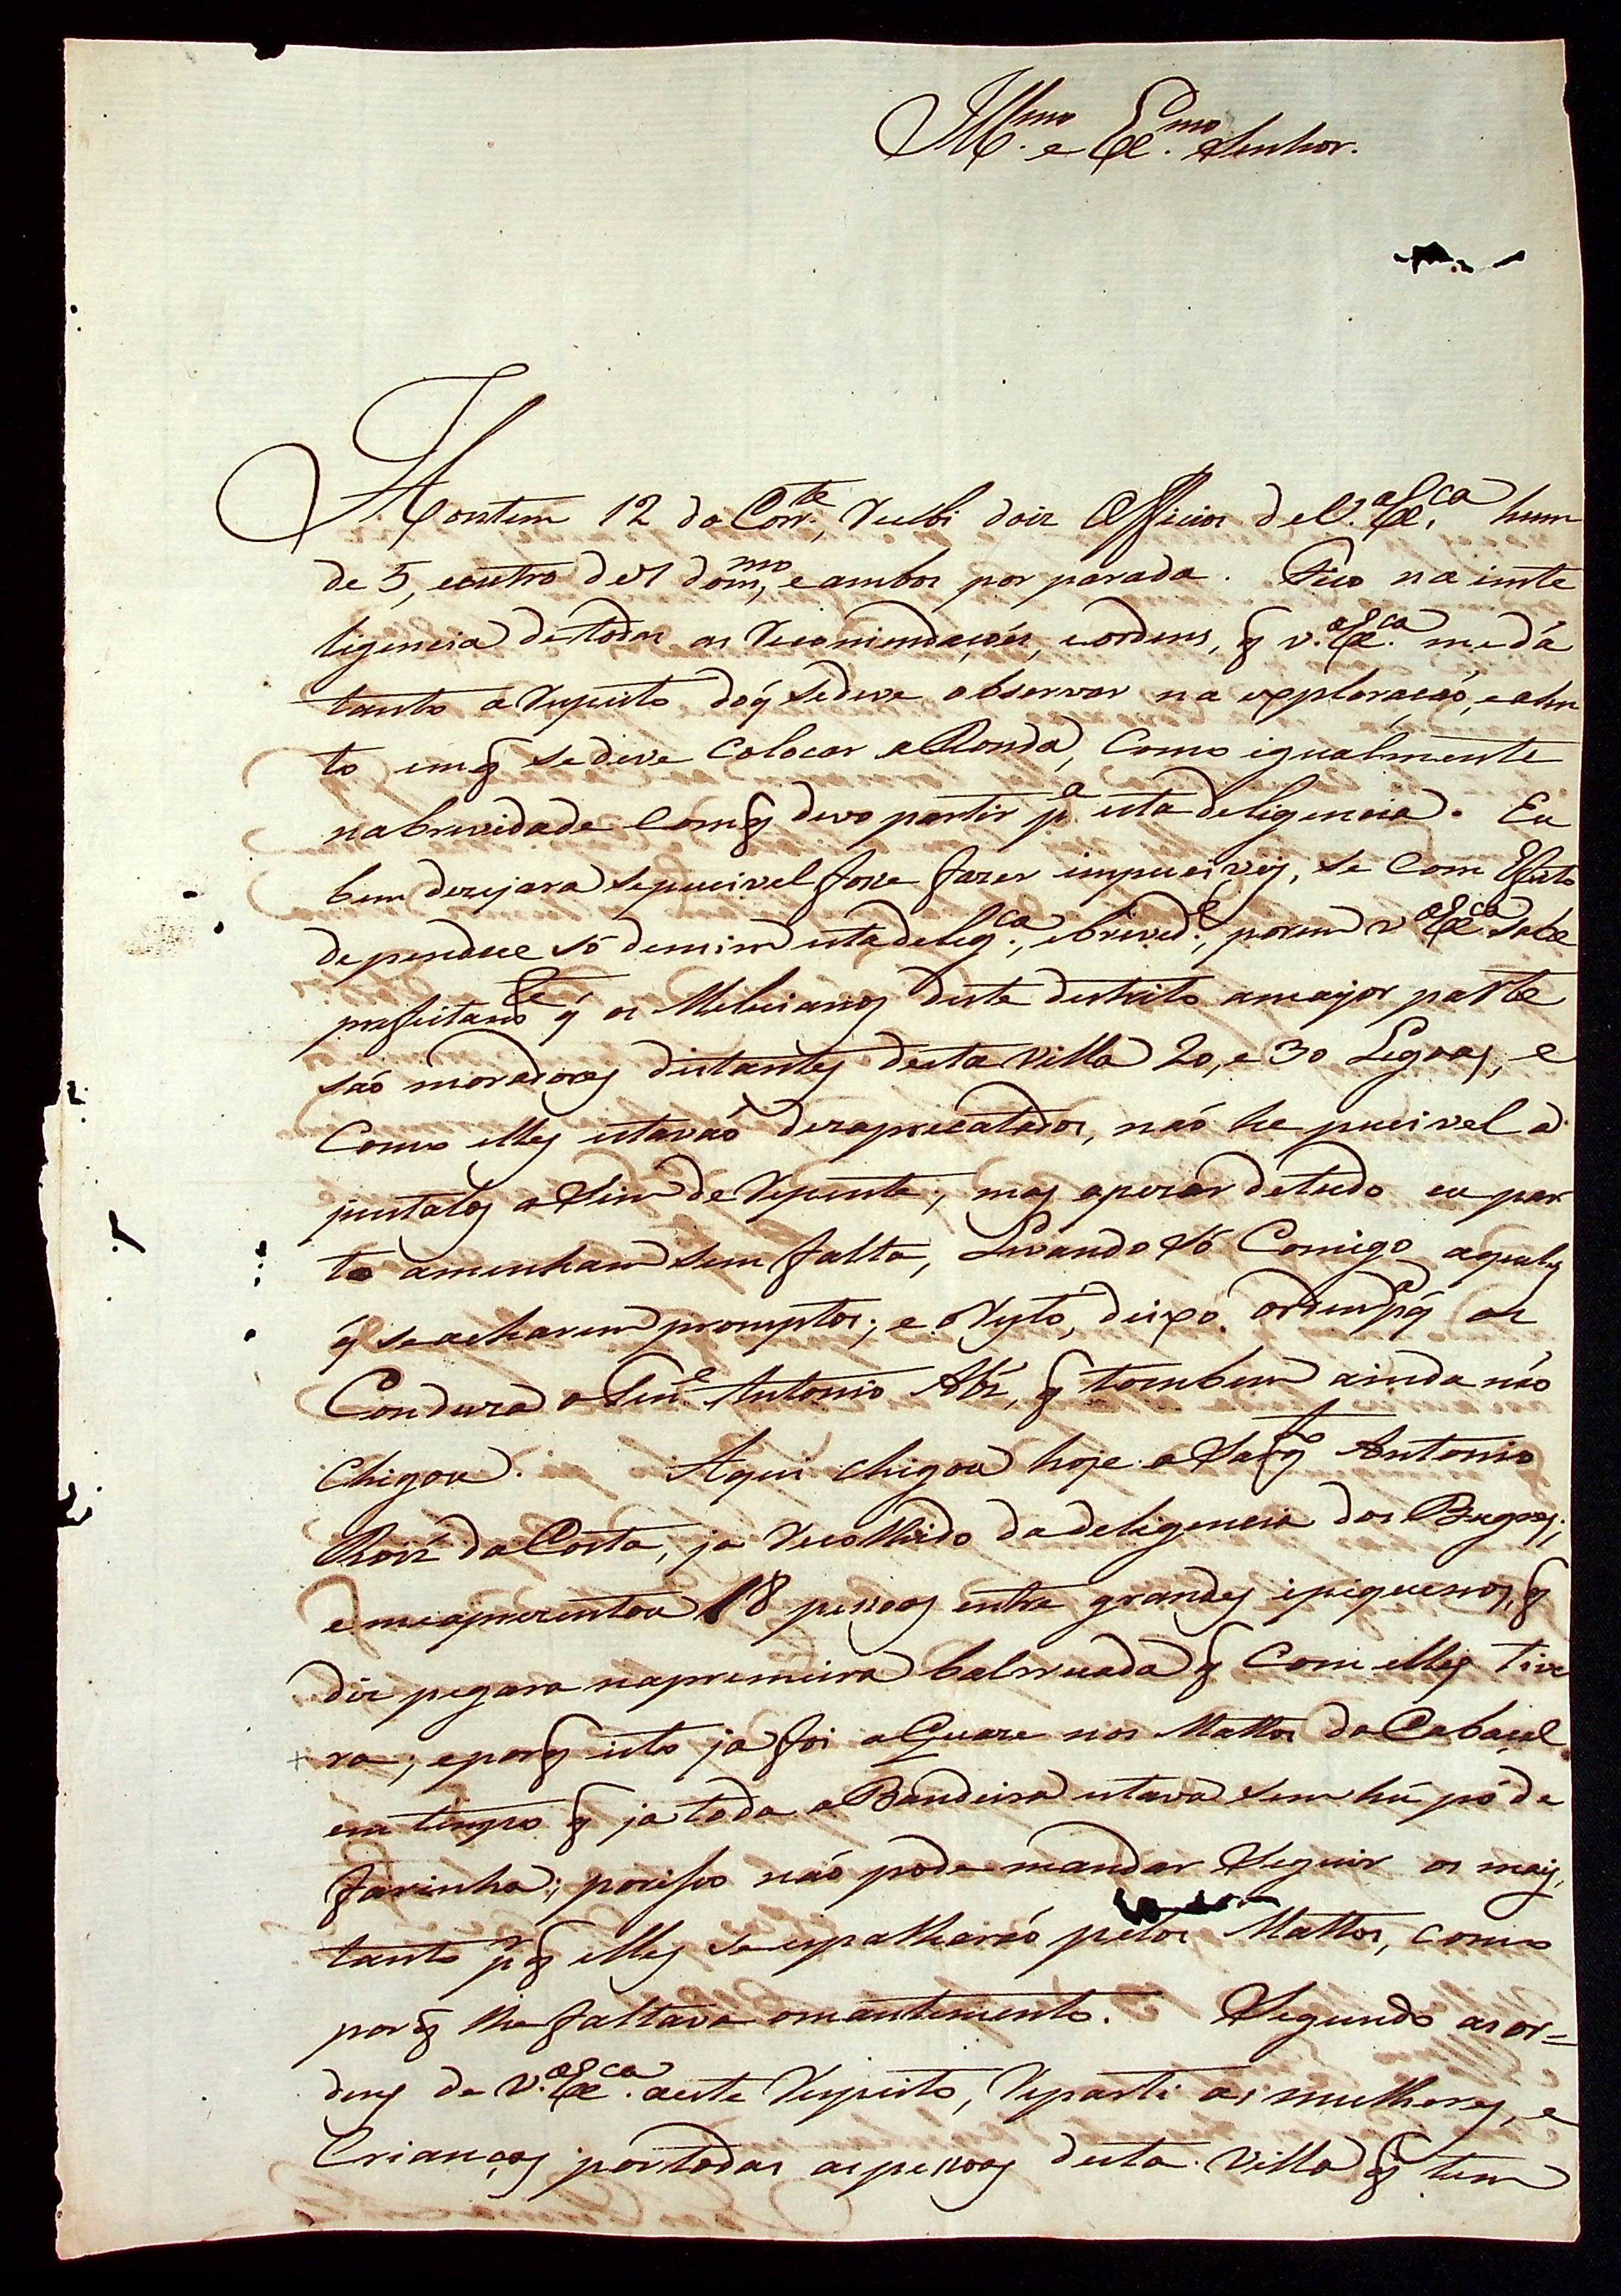 Ill.mo e Ex.mo Senhor.
Hontem 12 do Corr.te, Recebi dois Officios de V.a Ex.ca hum
de 5, e outro de 7 do m.mo, e ambos por parada. Fico na inte
ligencia de todas as Recomendaçoés, e ordens, q V.a Ex.ca me dá
tanto a Respeito do q̃ se deve observar na exploracaó, e asim
to em q se deve Colocar a Ronda, Como igualmente
na brevidade Com q devo partir p.a esta deligencia. Eu
bem dezejara se pucivel fose fazer impuciveis, se Com Efeito
dependece só de mim esta delig.ca, e brevid.e, porem V.a Ex.ca Sabe
prefeitam.te q̃ os Melicianos deste destrito a mayor parte
saó moradores distantes desta Villa 20, e 30 Legoas, e
Como elles estavaó dezaprecatados, naó he pucivel a
juntalos asim de Repente; mas apezar de tudo eu par
to amenham sem falta, Levando só Comigo aqueles
q̃ se acharem promptos; e o Resto, deixo ordem p.a q̃ os
Conduza o Ten.e Antonio Alz, q tombem ainda não
Chigou. Aqui chigou hoje o Sarg.to Antonio
Roiz da Costa, ja Recolhido da deligencia dos Bugres;
e me aprezentou 18 pessoas entre grandes e piquenos, q
diz pegara na premeira balrruada q Com elles tive
ra; e por q isto ja foi a Quaze nos Mattos do Cabaçal
em tempo q ja toda a Bandeira estava sem hú pó de
farinha; porisso naó pode mandar Seguir os mais,
tanto p.r q elles se espalharaó pelos Mattos, como
por q lhe faltava o mantimento. Segundo as or=
dens de V.a Ex.ca a este Respeito, Reparti as mulheres, e
Crianças por todas as pessoas desta Villa q tem